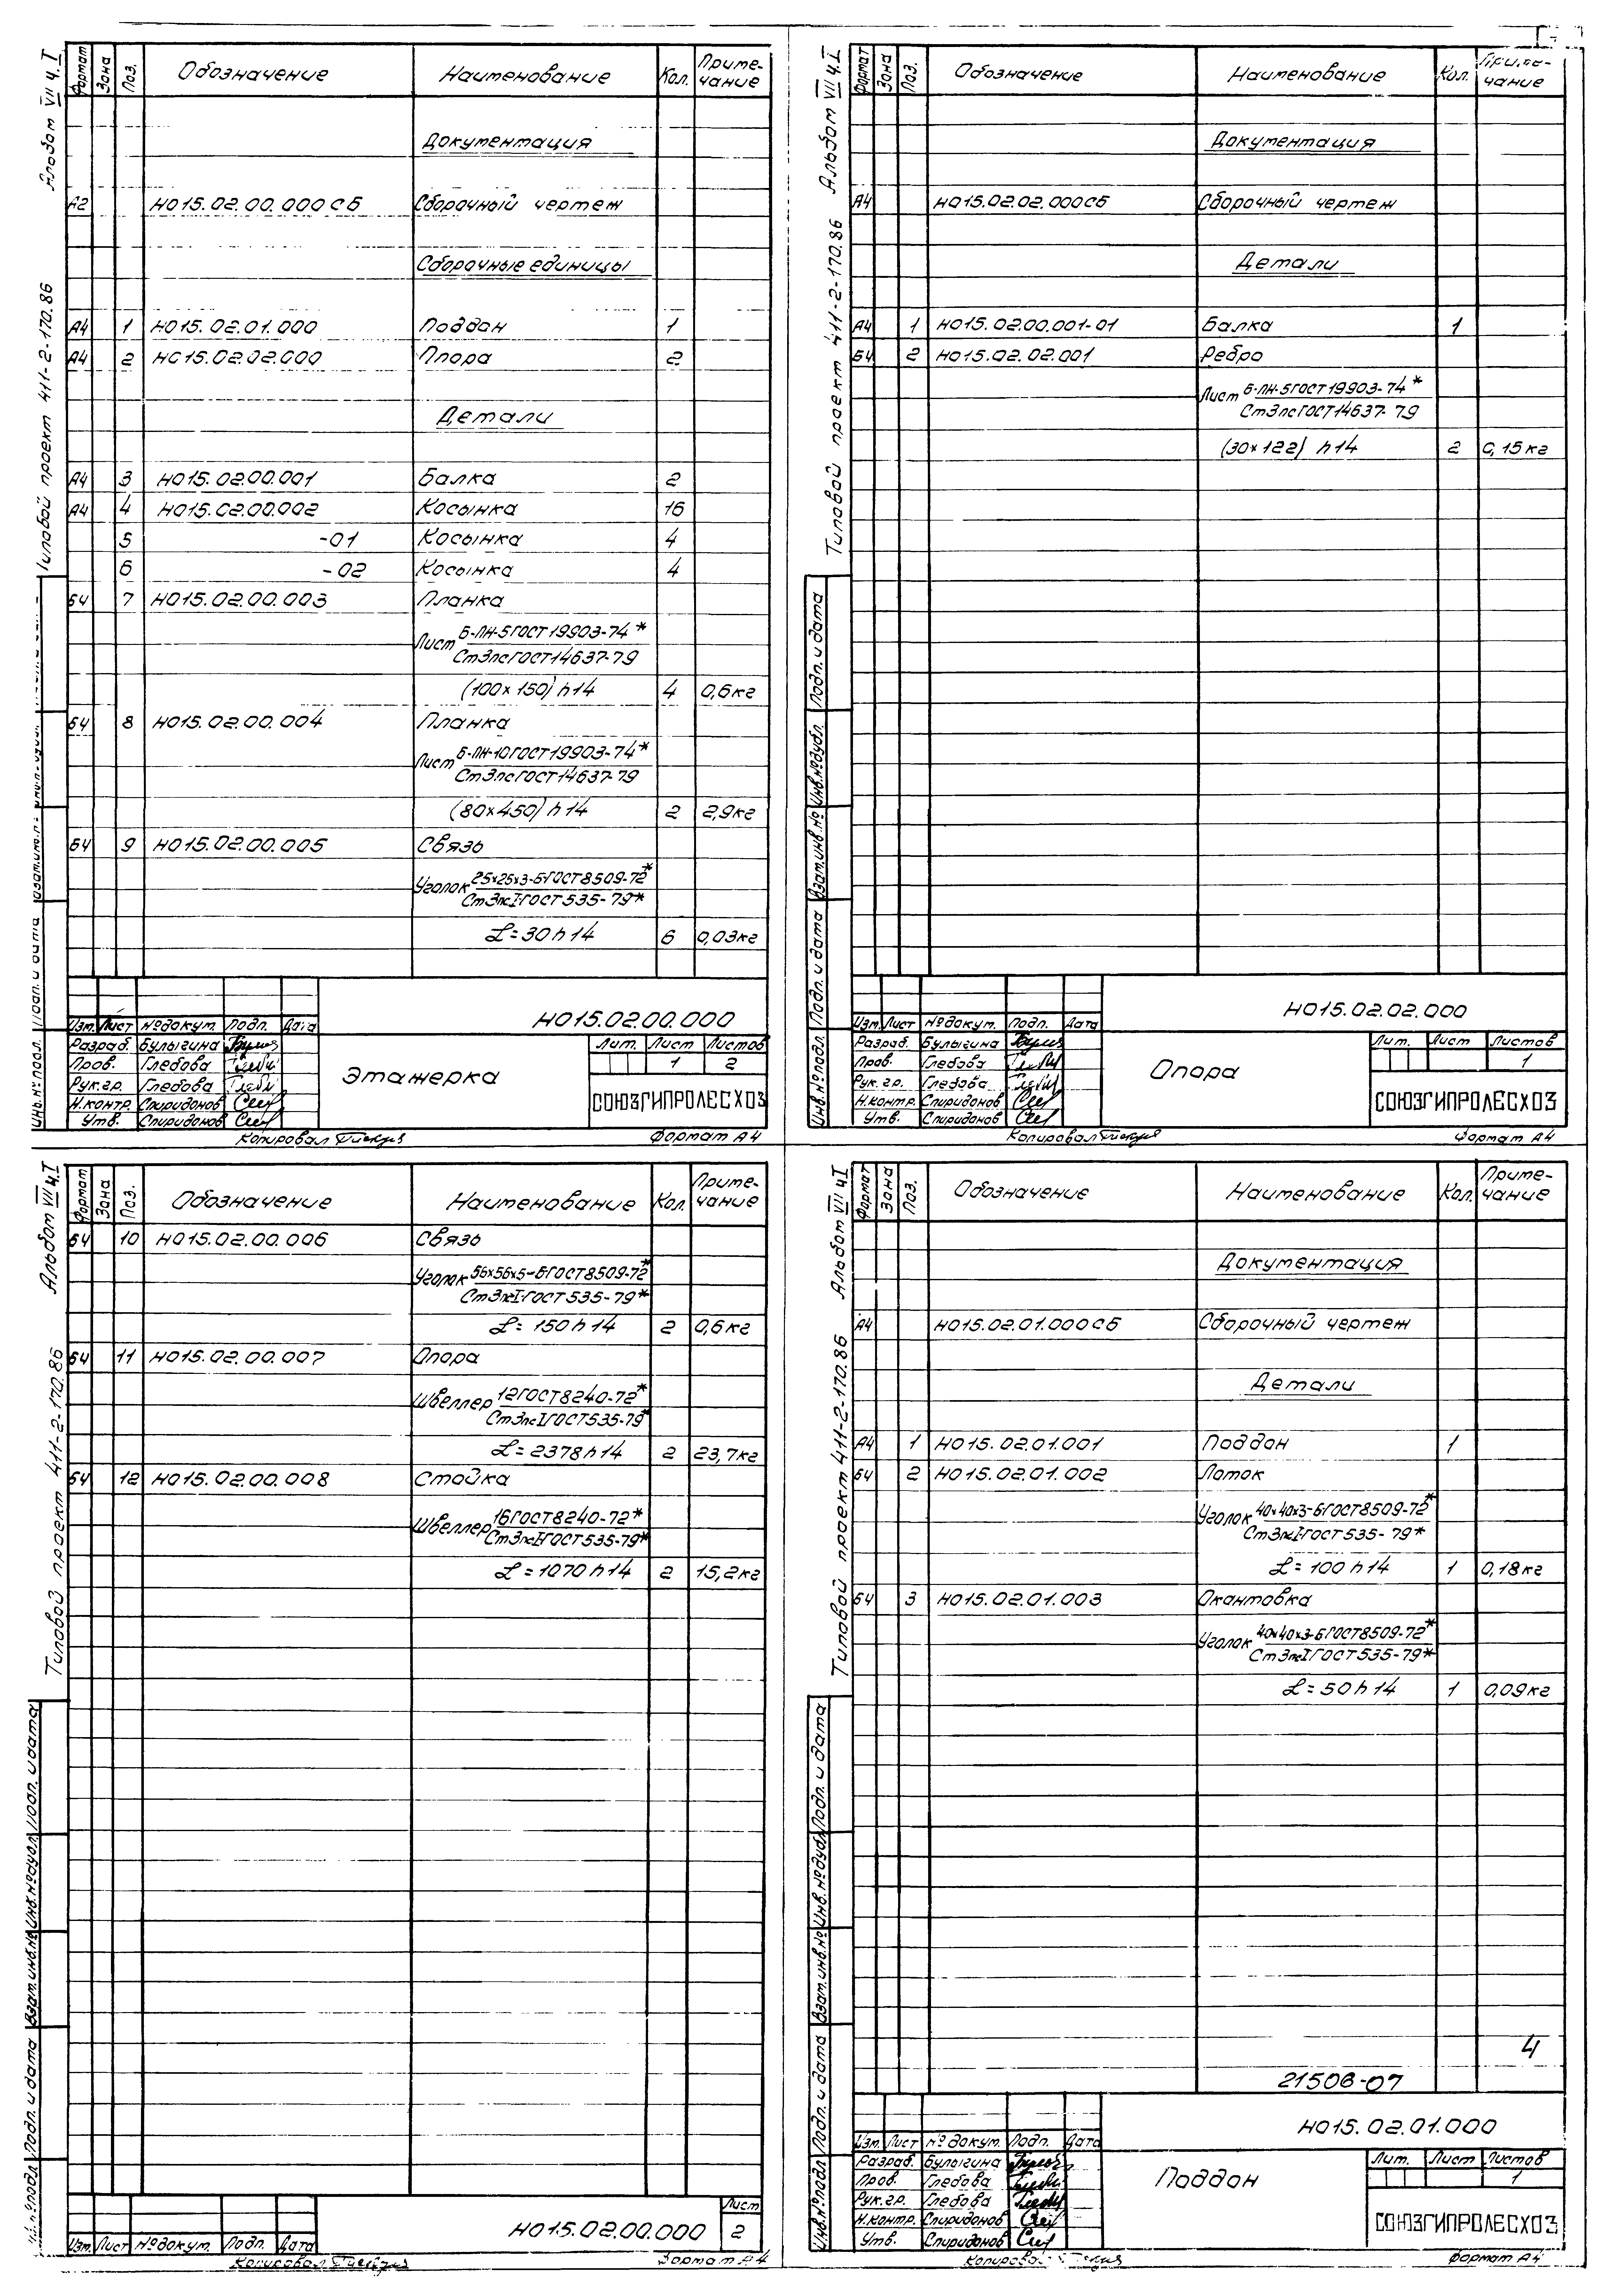 Альбом VII ч.I
Типовой проект 411-2-170.86
Формат Зона Поз. Обозначение Наименование Кол. Приме-
чание
Документация
А2 НО15.02.00.000СБ Сборочный чертеж
Сборочные единицы
А4 1 НО15.02.01.000 Поддон 1
А4 2 НО15.02.02.000 Опора 2
Детали
А4 3 НО15.02.00.001 Балка 2
А4 4 НО15.02.00.002 Косынка 16
5 -01 Косынка 4
6 -02 Косынка 4
БЧ 7 НО15.02.00.003 Планка
Лист Б-ПН-5ГОСТ19903-74*
Ст3псГОСТ14637-79
(100х150) h14 4 0,6кг
БЧ 8 НО15.02.00.004 Планка
Лист Б-ПН-10ГОСТ19903-74*
Ст3псГОСТ14637-79
(80х450) h14 2 2,9кг
БЧ 9 НО15.02.00.005 Связь
Уголок 25х25х3-БГОСТ8509-72*
Ст3псIГОСТ535-79*
L=30 h14 6 0,03кг
НО15.02.00.000
Изм. Лист №докум. Подп. Дата
Разраб. Булыгина
Пров. Глебова
Рук.гр. Глебова
Н.контр. Спиридонов
Утв. Спиридонов
Этажерка
Лит. Лист Листов
1 2
СОЮЗГИПРОЛЕСХОЗ
Инв.№подл. Подп. и дата
Копировал Формат А4
Альбом VII ч.I
Типовой проект 411-2-170.86
Формат Зона Поз. Обозначение Наименование Кол. Приме-
чание
Документация
А4 НО15.02.02.000СБ Сборочный чертеж
Детали
А4 1 НО15.02.00.001-01 Балка 1
БЧ 2 НО15.02.02.001 Ребро
Лист Б-ПН-5ГОСТ19903-74*
Ст3псГОСТ14637-79
(30х122) h14 2 0,15кг
НО15.02.02.000
Изм. Лист №докум. Подп. Дата
Разраб. Булыгина
Пров. Глебова
Рук.гр. Глебова
Н.контр. Спиридонов
Утв. Спиридонов
Опора
Лит. Лист Листов
1
СОЮЗГИПРОЛЕСХОЗ
Инв.№подл. Подп. и дата Взам.инв.№ Инв.№дубл. Подп. и дата
Копировал Формат А4
Альбом VII ч.I
Типовой проект 411-2-170.86
Формат Зона Поз. Обозначение Наименование Кол. Приме-
чание
БЧ 10 НО15.02.00.006 Связь
Уголок 56х56х5-БГОСТ8509-72*
Ст3псIГОСТ535-79*
L=150 h14 2 0,6кг
БЧ 11 НО15.02.00.007 Опора
Швеллер 12ГОСТ8240-72*
Ст3псIГОСТ535-79*
L=2378 h14 2 23,7кг
БЧ 12 НО15.02.00.008 Стойка
Швеллер 16ГОСТ8240-72*
Ст3псIГОСТ535-79*
L=1070 h14 2 15,2кг
Изм. Лист №докум. Подп. Дата
НО15.02.00.000
Лист
2
Инв.№подл. Подп. и дата Взам.инв.№ Инв.№дубл. Подп. и дата
Копировал Формат А4
Альбом VII ч.I
Типовой проект 411-2-170.86
Формат Зона Поз. Обозначение Наименование Кол. Приме-
чание
Документация
А4 НО15.02.01.000СБ Сборочный чертеж
Детали
А4 1 НО15.02.01.001 Поддон 1
БЧ 2 НО15.02.01.002 Лоток
Уголок 40х40х3-БГОСТ8509-72*
Ст3псIГОСТ535-79*
L=100 h14 1 0,18кг
БЧ 3 НО15.02.01.003 Окантовка
Уголок 40х40х3-БГОСТ8509-72*
Ст3псIГОСТ535-79*
L=50 h14 1 0,09кг
4
21506-07
НО15.02.01.000
Изм. Лист №докум. Подп. Дата
Разраб. Булыгина
Пров. Глебова
Рук.гр. Глебова
Н.контр. Спиридонов
Утв. Спиридонов
Поддон
Лит. Лист Листов
1
СОЮЗГИПРОЛЕСХОЗ
Инв.№подл. Подп. и дата Взам.инв.№ Инв.№дубл. Подп. и дата
Копировал Формат А4